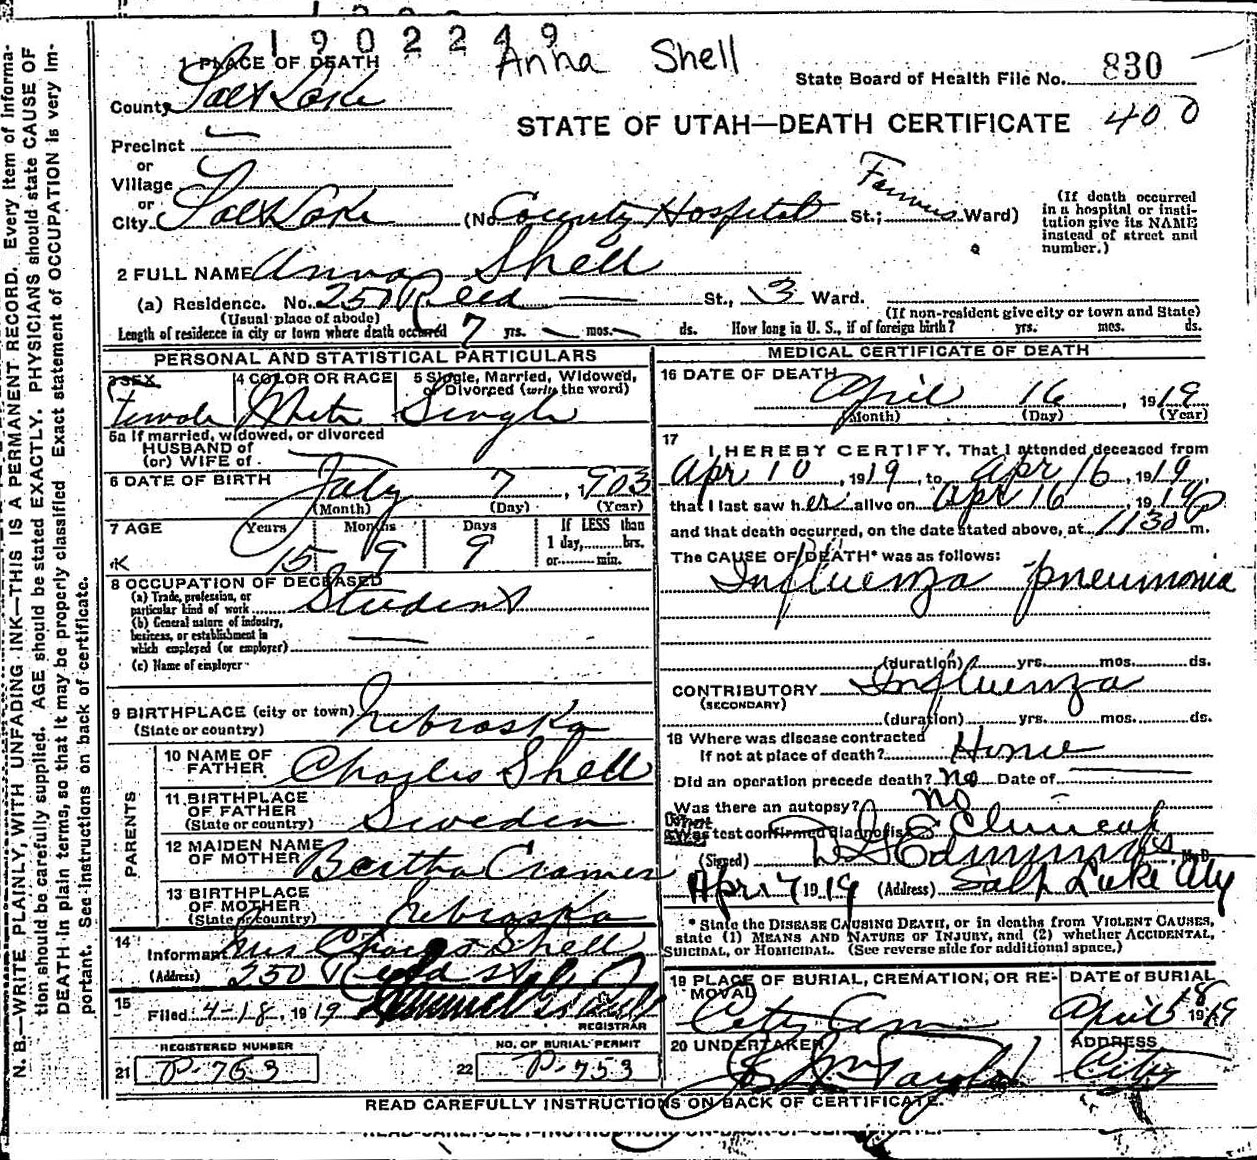 1902249
Anna Shell
State Board of Health File No. 830
1 PLACE OF DEATH
County Salt Lake
STATE OF UTAH—DEATH CERTIFICATE 400
Precinct
or
Village
or
City Salt Lake (No. County Hospital St.; Ward)
(If death occurred in a hospital or institution give its NAME instead of street and number.)
2 FULL NAME Anna Shell
(a) Residence. No. 257 Reed St., 3 Ward.
(Usual place of abode) (If non-resident give city or town and State)
Length of residence in city or town where death occurred 7 yrs. — mos. — ds. How long in U. S., if of foreign birth? yrs. mos. ds.
PERSONAL AND STATISTICAL PARTICULARS
3 SEX 4 COLOR OR RACE 5 Single, Married, Widowed, or Divorced (write the word)
Female White Single
5a If married, widowed, or divorced
HUSBAND of
(or) WIFE of
6 DATE OF BIRTH July 7, 1903
(Month) (Day) (Year)
7 AGE Years Months Days If LESS than
1 day,......hrs.
or.........min.
15 9 9
8 OCCUPATION OF DECEASED
(a) Trade, profession, or
particular kind of work Student
(b) General nature of industry,
business, or establishment in
which employed (or employer)
(c) Name of employer
9 BIRTHPLACE (city or town) Nebraska
(State or country)
PARENTS
10 NAME OF FATHER Charles Shell
11 BIRTHPLACE OF FATHER (State or country) Sweden
12 MAIDEN NAME OF MOTHER Bertha Cramer
13 BIRTHPLACE OF MOTHER (State or country) Nebraska
14
Informant Mrs Charles Shell
(Address) 250
15
Filed 4-18, 1919
REGISTRAR
REGISTERED NUMBER NO. OF BURIAL PERMIT
21 P-753 22 P-753
MEDICAL CERTIFICATE OF DEATH
16 DATE OF DEATH
April 16, 1919
(Month) (Day) (Year)
17 I HEREBY CERTIFY, That I attended deceased from
Apr 10, 1919, to Apr 16, 1919,
that I last saw her alive on Apr 16 1919
and that death occurred, on the date stated above, at 1130 P m.
The CAUSE OF DEATH* was as follows:
Influenza pneumonia
(duration) yrs. mos. ds.
CONTRIBUTORY Influenza
(SECONDARY)
(duration) yrs. mos. ds.
18 Where was disease contracted
If not at place of death? Home
Did an operation precede death? No Date of —
Was there an autopsy? no
What test confirmed diagnosis? Clinical
(Signed) Edmunds, M. D.
Apr 17 1919 (Address) Salt Lake City
* State the DISEASE CAUSING DEATH, or in deaths from VIOLENT CAUSES,
state (1) MEANS AND NATURE OF INJURY, and (2) whether ACCIDENTAL,
SUICIDAL, or HOMICIDAL. (See reverse side for additional space.)
19 PLACE OF BURIAL, CREMATION, OR REMOVAL DATE of BURIAL
City Cem April 18 1919
20 UNDERTAKER ADDRESS
Taylor City
READ CAREFULLY INSTRUCTIONS ON BACK OF CERTIFICATE.
N. B.—WRITE PLAINLY, WITH UNFADING INK—THIS IS A PERMANENT RECORD. Every item of information
should be carefully supplied. AGE should be stated EXACTLY. PHYSICIANS should state CAUSE OF
DEATH in plain terms, so that it may be properly classified. Exact statement of OCCUPATION is very important.
See instructions on back of certificate.